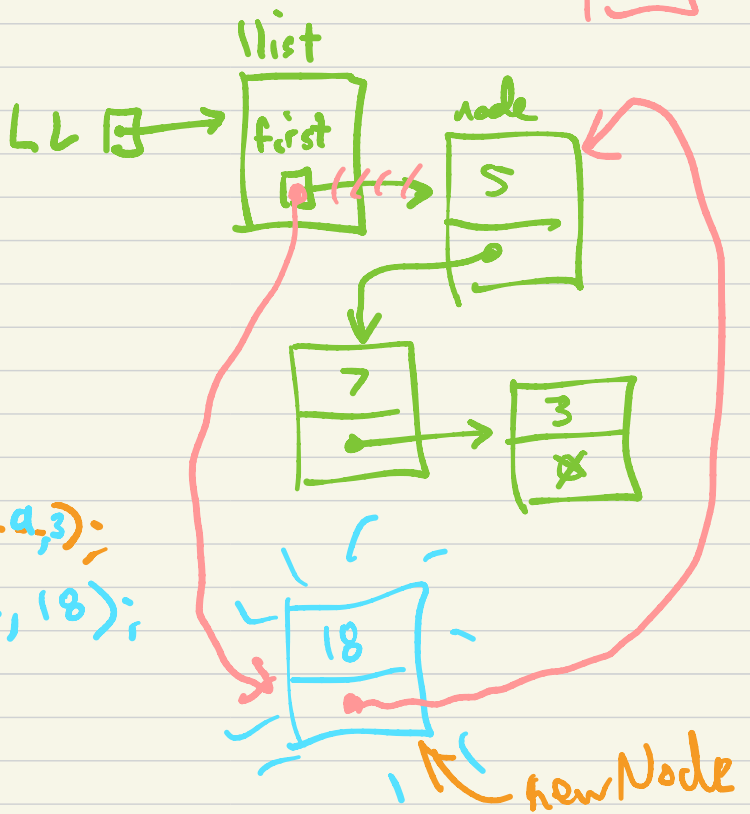 llist
LL
first
node
5
7
3
a,3);
, 18);
18
newNode